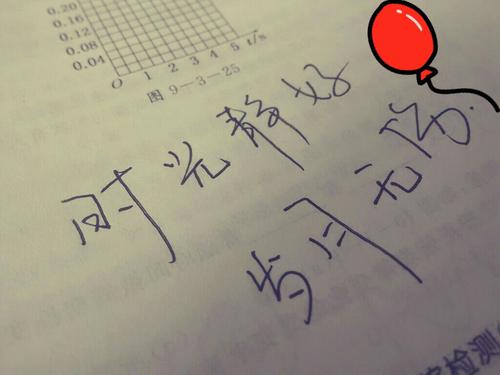 0.20
0.16
0.12
0.08
0.04
O 1 2 3 4 5 t/s
图 9-3-25
时光静好
岁月无伤.
检测